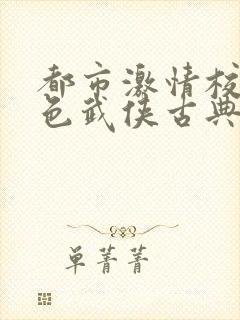 都市激情校
色武侠古典
单菁菁